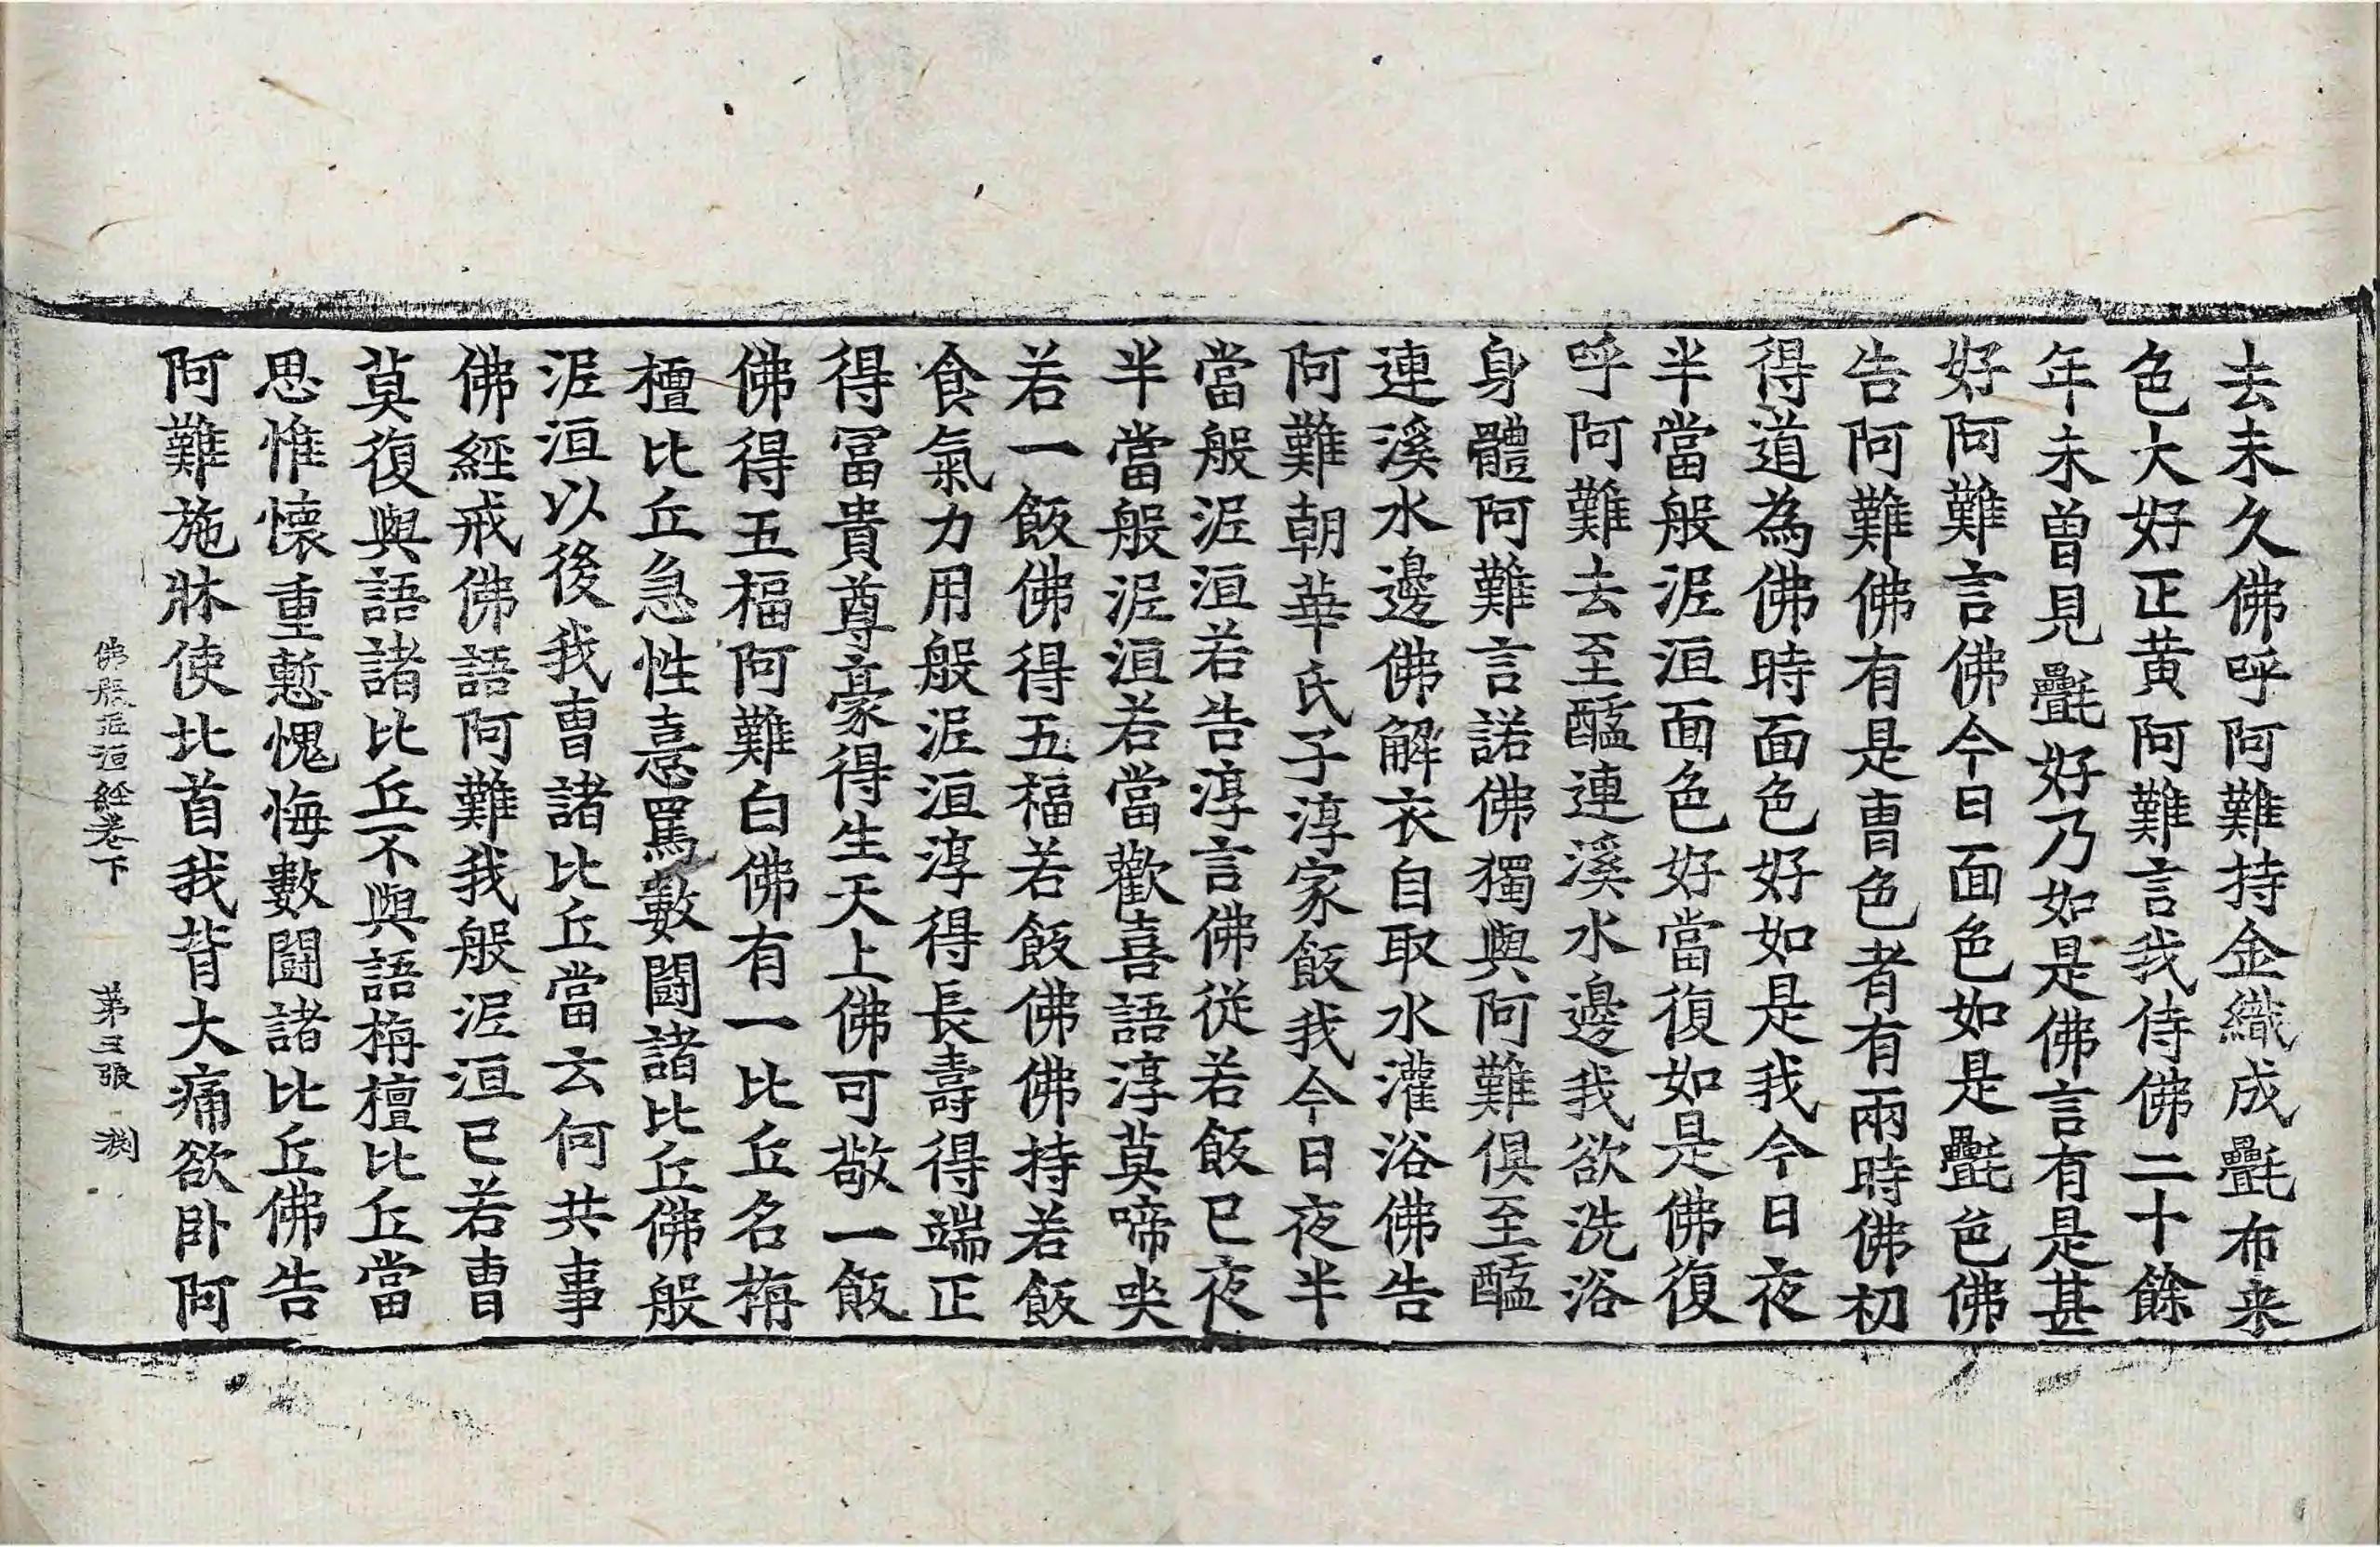 去未久佛呼阿難持金織成㲲布来
色大好正黄阿難言我侍佛二十餘
年未曽見㲲好乃如是佛言有是甚
好阿難言佛今日面色如是㲲色佛
告阿難佛有是曺色者有兩時佛初
得道為佛時面色好如是我今日夜
半當般泥洹面色好當復如是佛復
呼阿難去至醯連溪水邊我欲洗浴
身體阿難言諾佛獨與阿難俱至醯
連溪水邊佛解衣自取水灌浴佛告
阿難朝華氏子淳家飯我今日夜半
當般泥洹若告淳言佛從若飯已夜
半當般泥洹若當歡喜語淳莫啼哭
若一飯佛得五福若飯佛佛持若飯
食氣力用般泥洹淳得長壽得端正
得冨貴尊豪得生天上佛可敬一飯
佛得五福阿難白佛有一比丘名栴
檀比丘急性憙罵數闘諸比丘佛般
泥洹以後我曺諸比丘當云何共事
佛經戒佛語阿難我般泥洹已若曺
莫復與語諸比丘不與語栴檀比丘當
思惟懷重慙愧悔數闘諸比丘佛告
阿難施牀使北首我背大痛欲卧阿
佛般泥洹經卷下　第三張